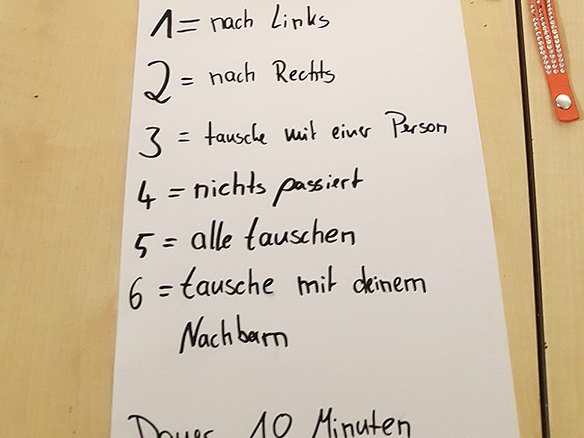 1 = nach Links
2 = nach Rechts
3 = tausche mit einer Person
4 = nichts passiert
5 = alle tauschen
6 = tausche mit deinem
Nachbarn
Dauer 10 Minuten